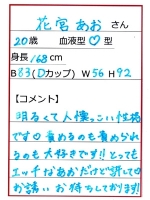 花宮 あお さん
20歳 血液型 ♡ 型
身長168cm
B83(Dカップ) W56 H92
【コメント】
明るくて人懐っこい性格
です♡責めるのも責められ
るのも大好きです!!とっても
エッチなあおだけど優しくて
お誘いお待ちしております!